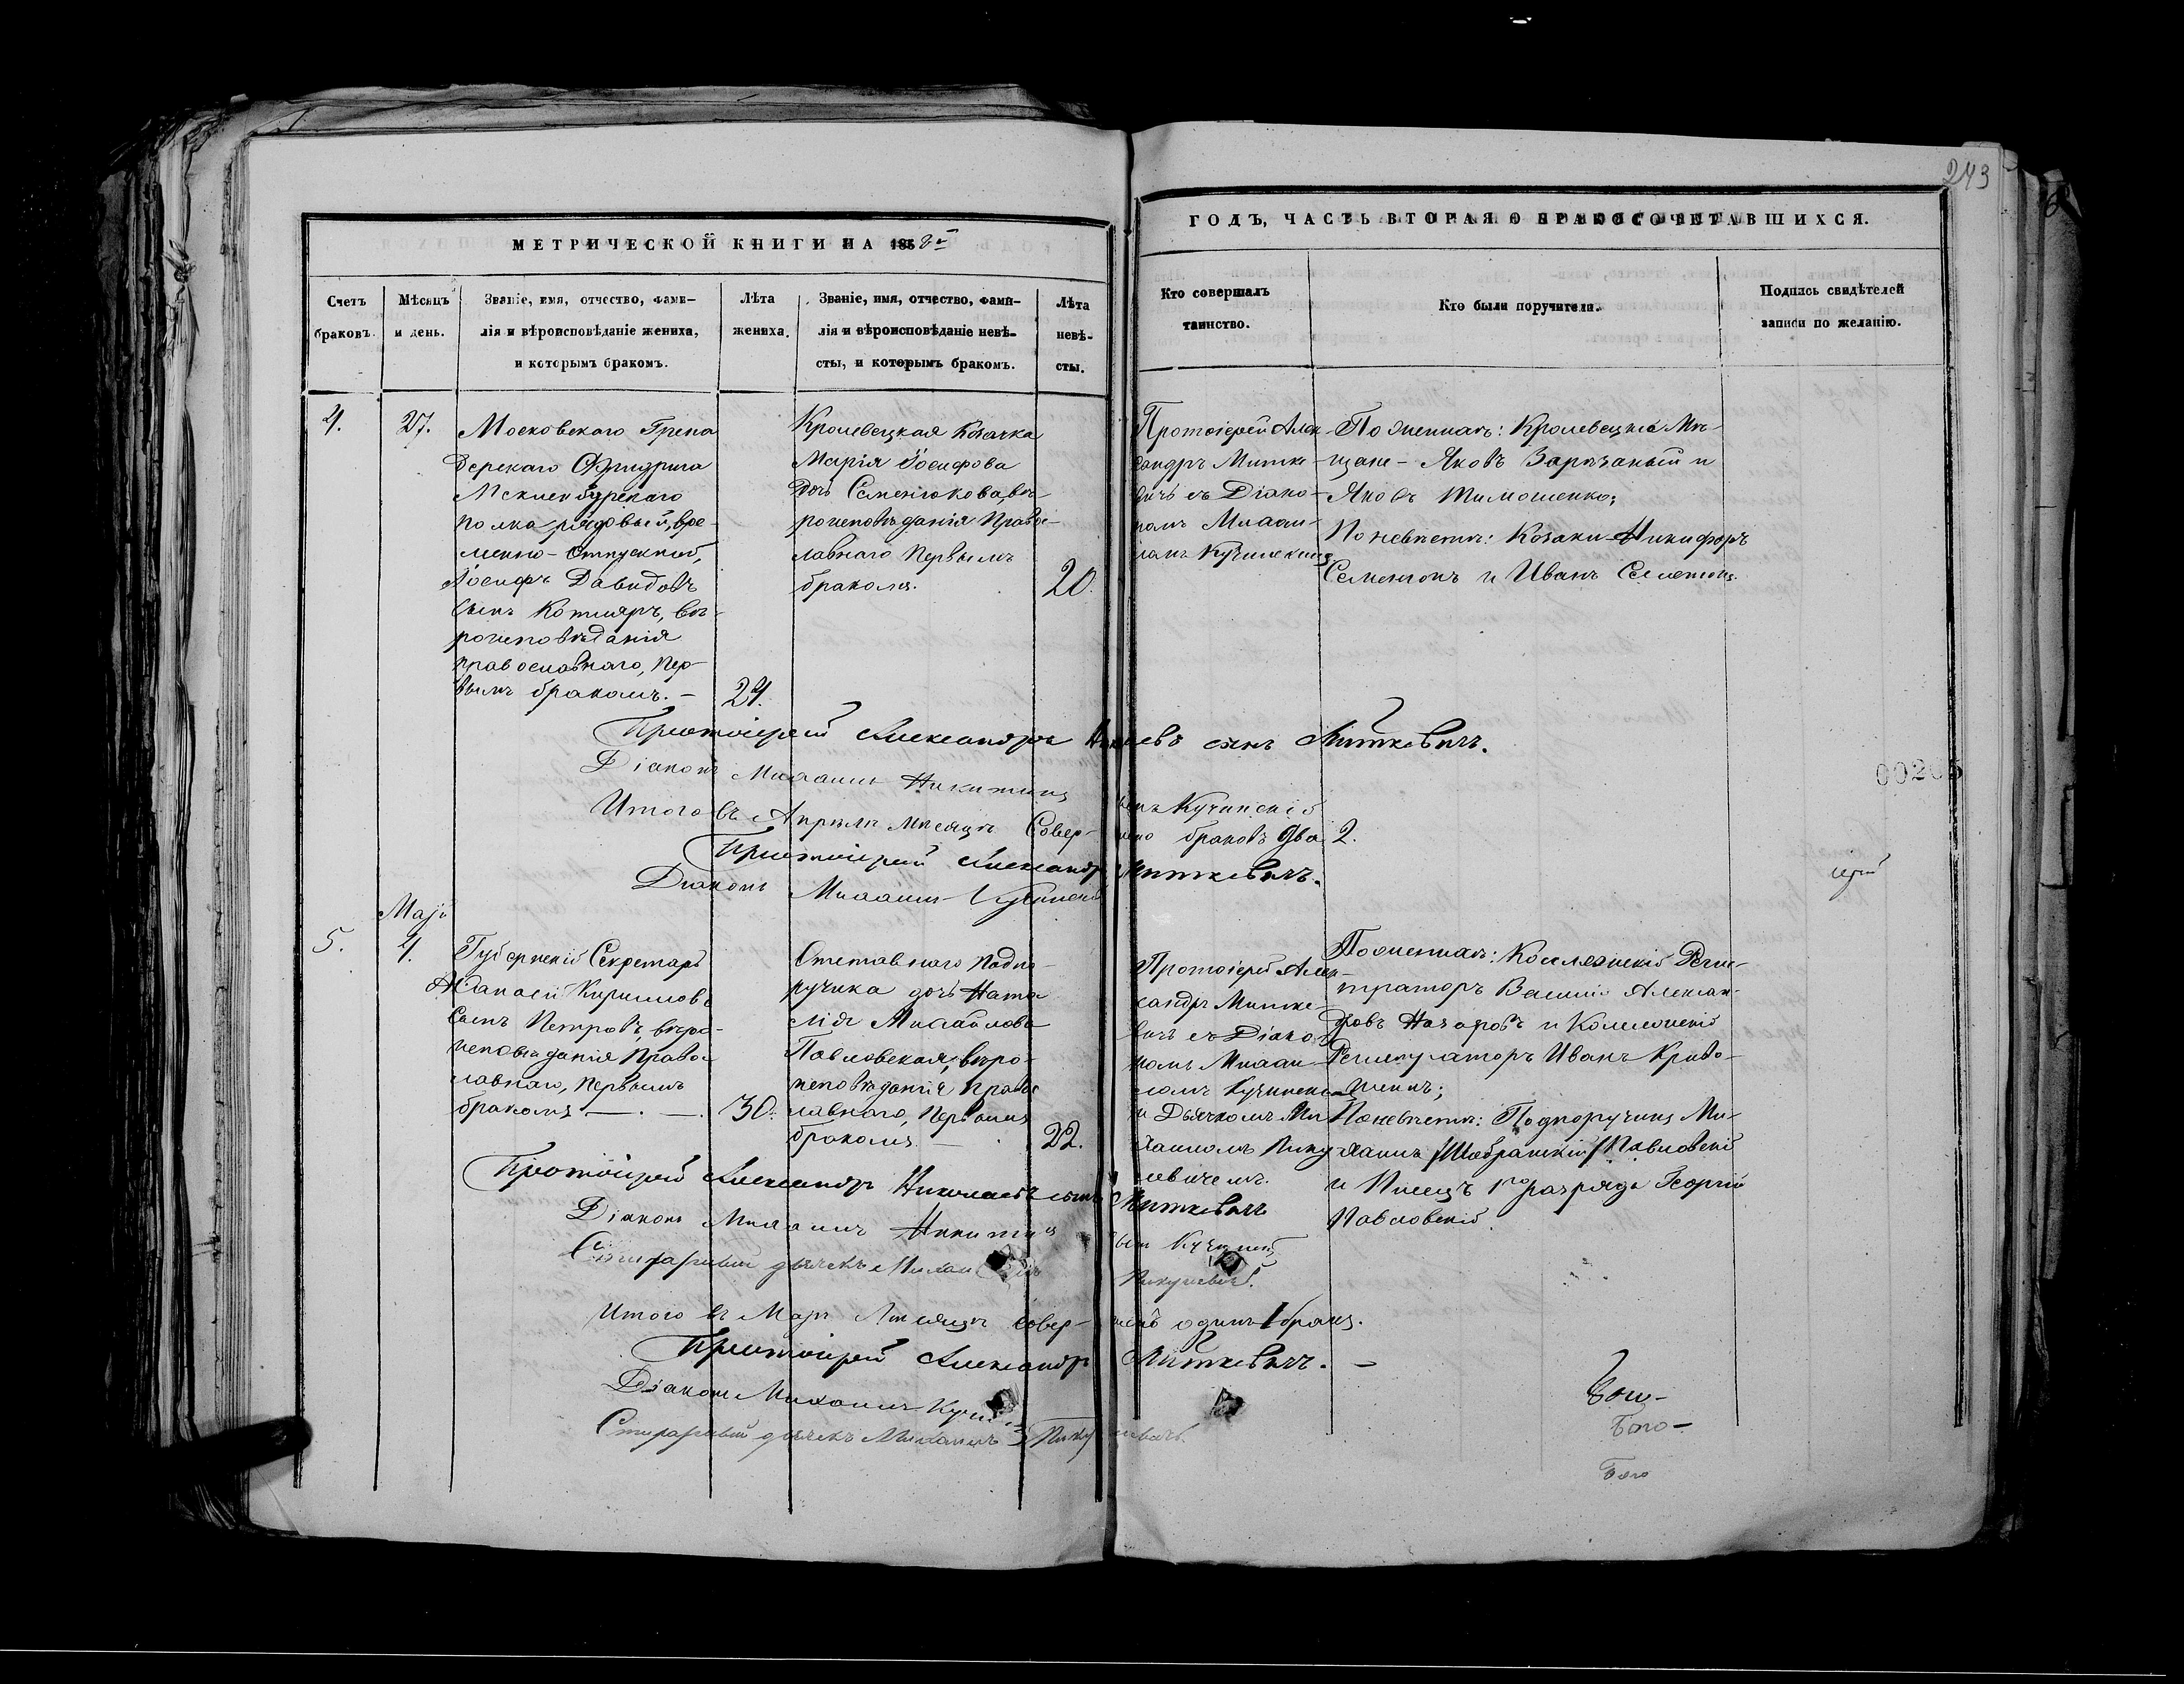 243
МЕТРИЧЕСКОЙ КНИГИ НА 1858й
ГОДЪ, ЧАСТЬ ВТОРАЯ О БРАКОСОЧЕТАВШИХСЯ.
Счетъ
браковъ.
Мѣсяцъ
и день.
Званіе, имя, отчество, фами-
лія и вѣроисповѣданіе жениха,
и которымъ бракомъ.
Лѣта
жениха.
Званіе, имя, отчество, фами-
лія и вѣроисповѣданіе невѣ-
сты, и которымъ бракомъ.
Лѣта
невѣ-
сты.
Кто совершалъ
таинство.
Кто были поручители.
Подпись свидѣтелей
записи по желанію.
4.
27.
Московскаго Грена
дерскаго Фридриха
Мекленбургскаго
полка рядовый, вре-
менно-Отпускной,
Іосифъ Давидовъ
сынъ Котляръ, вѣ-
роисповѣданія
православнаго, пер-
вымъ бракомъ. –
24.
Кролевецкая Козачка
Марія Іосифова
дочь Семенюкова, вѣ-
роисповѣданія Право-
лавнаго Первымъ
бракомъ.
20.
Протоіерей Алек-
сандръ Митке-
вичъ съ Діако-
номъ Михаи-
ломъ Кучинскимъ
По женихѣ: Кролевецкіе Мѣ-
щане – Яковъ Зарѣчный и
Яковъ Тимошенко;
По невѣстѣ: Козаки Никифоръ
Семенюкъ и Иванъ Семенюкъ.
Протоіерей Александръ сынъ Миткевичъ.
Діаконъ Михаилъ Никитинъ сынъ Кучинскій
Итого въ Апрѣлѣ Мѣсяцѣ Совер- шено браковъ два 2.
Протоіерей Александръ Миткевичъ.
Діаконъ Михаилъ Кучинскій
00205
Маія
5.
4.
Губернскій Секретарь
Аѳанасій Кирилловъ
Сынъ Петровъ, вѣро-
исповѣданія Право-
лавнаго, Первымъ
бракомъ —. —.
30.
Отставнаго Подпо-
ручика дочь Ната
лія Михайлова
Павловская, вѣро-
исповѣданія Право
лавнаго, Первымъ
бракомъ. —
22.
Протоіерей Алек-
сандръ Митке-
вичъ съ Діако-
номъ Михаи-
ломъ Кучинскимъ
и Дьячкомъ Ми
хаиломъ Пику
левичемъ.
По женихѣ: Коллежскій Реги-
страторъ Василій Алексан-
дровъ Назаровъ и Коллежскій
Регистраторъ Иванъ Криво-
шеинъ;
По невѣстѣ: Подпоручикъ Ми-
хаилъ Павловскій
и Писецъ 1го разряда Георгій
Павловскій.
Протоіерей Александръ Николаевъ сынъ Миткевичъ
Діаконъ Михаилъ Никитинъ сынъ Кучинскій
дьячекъ Михаилъ Пикулевичъ.
Итого въ Маѣ Мѣсяцѣ Совер- шенъ одинъ 1 бракъ.
Протоіерей Александръ Миткевичъ. –
Діаконъ Михаилъ
дьячекъ Михаилъ
Бого-
Бого-
Бого